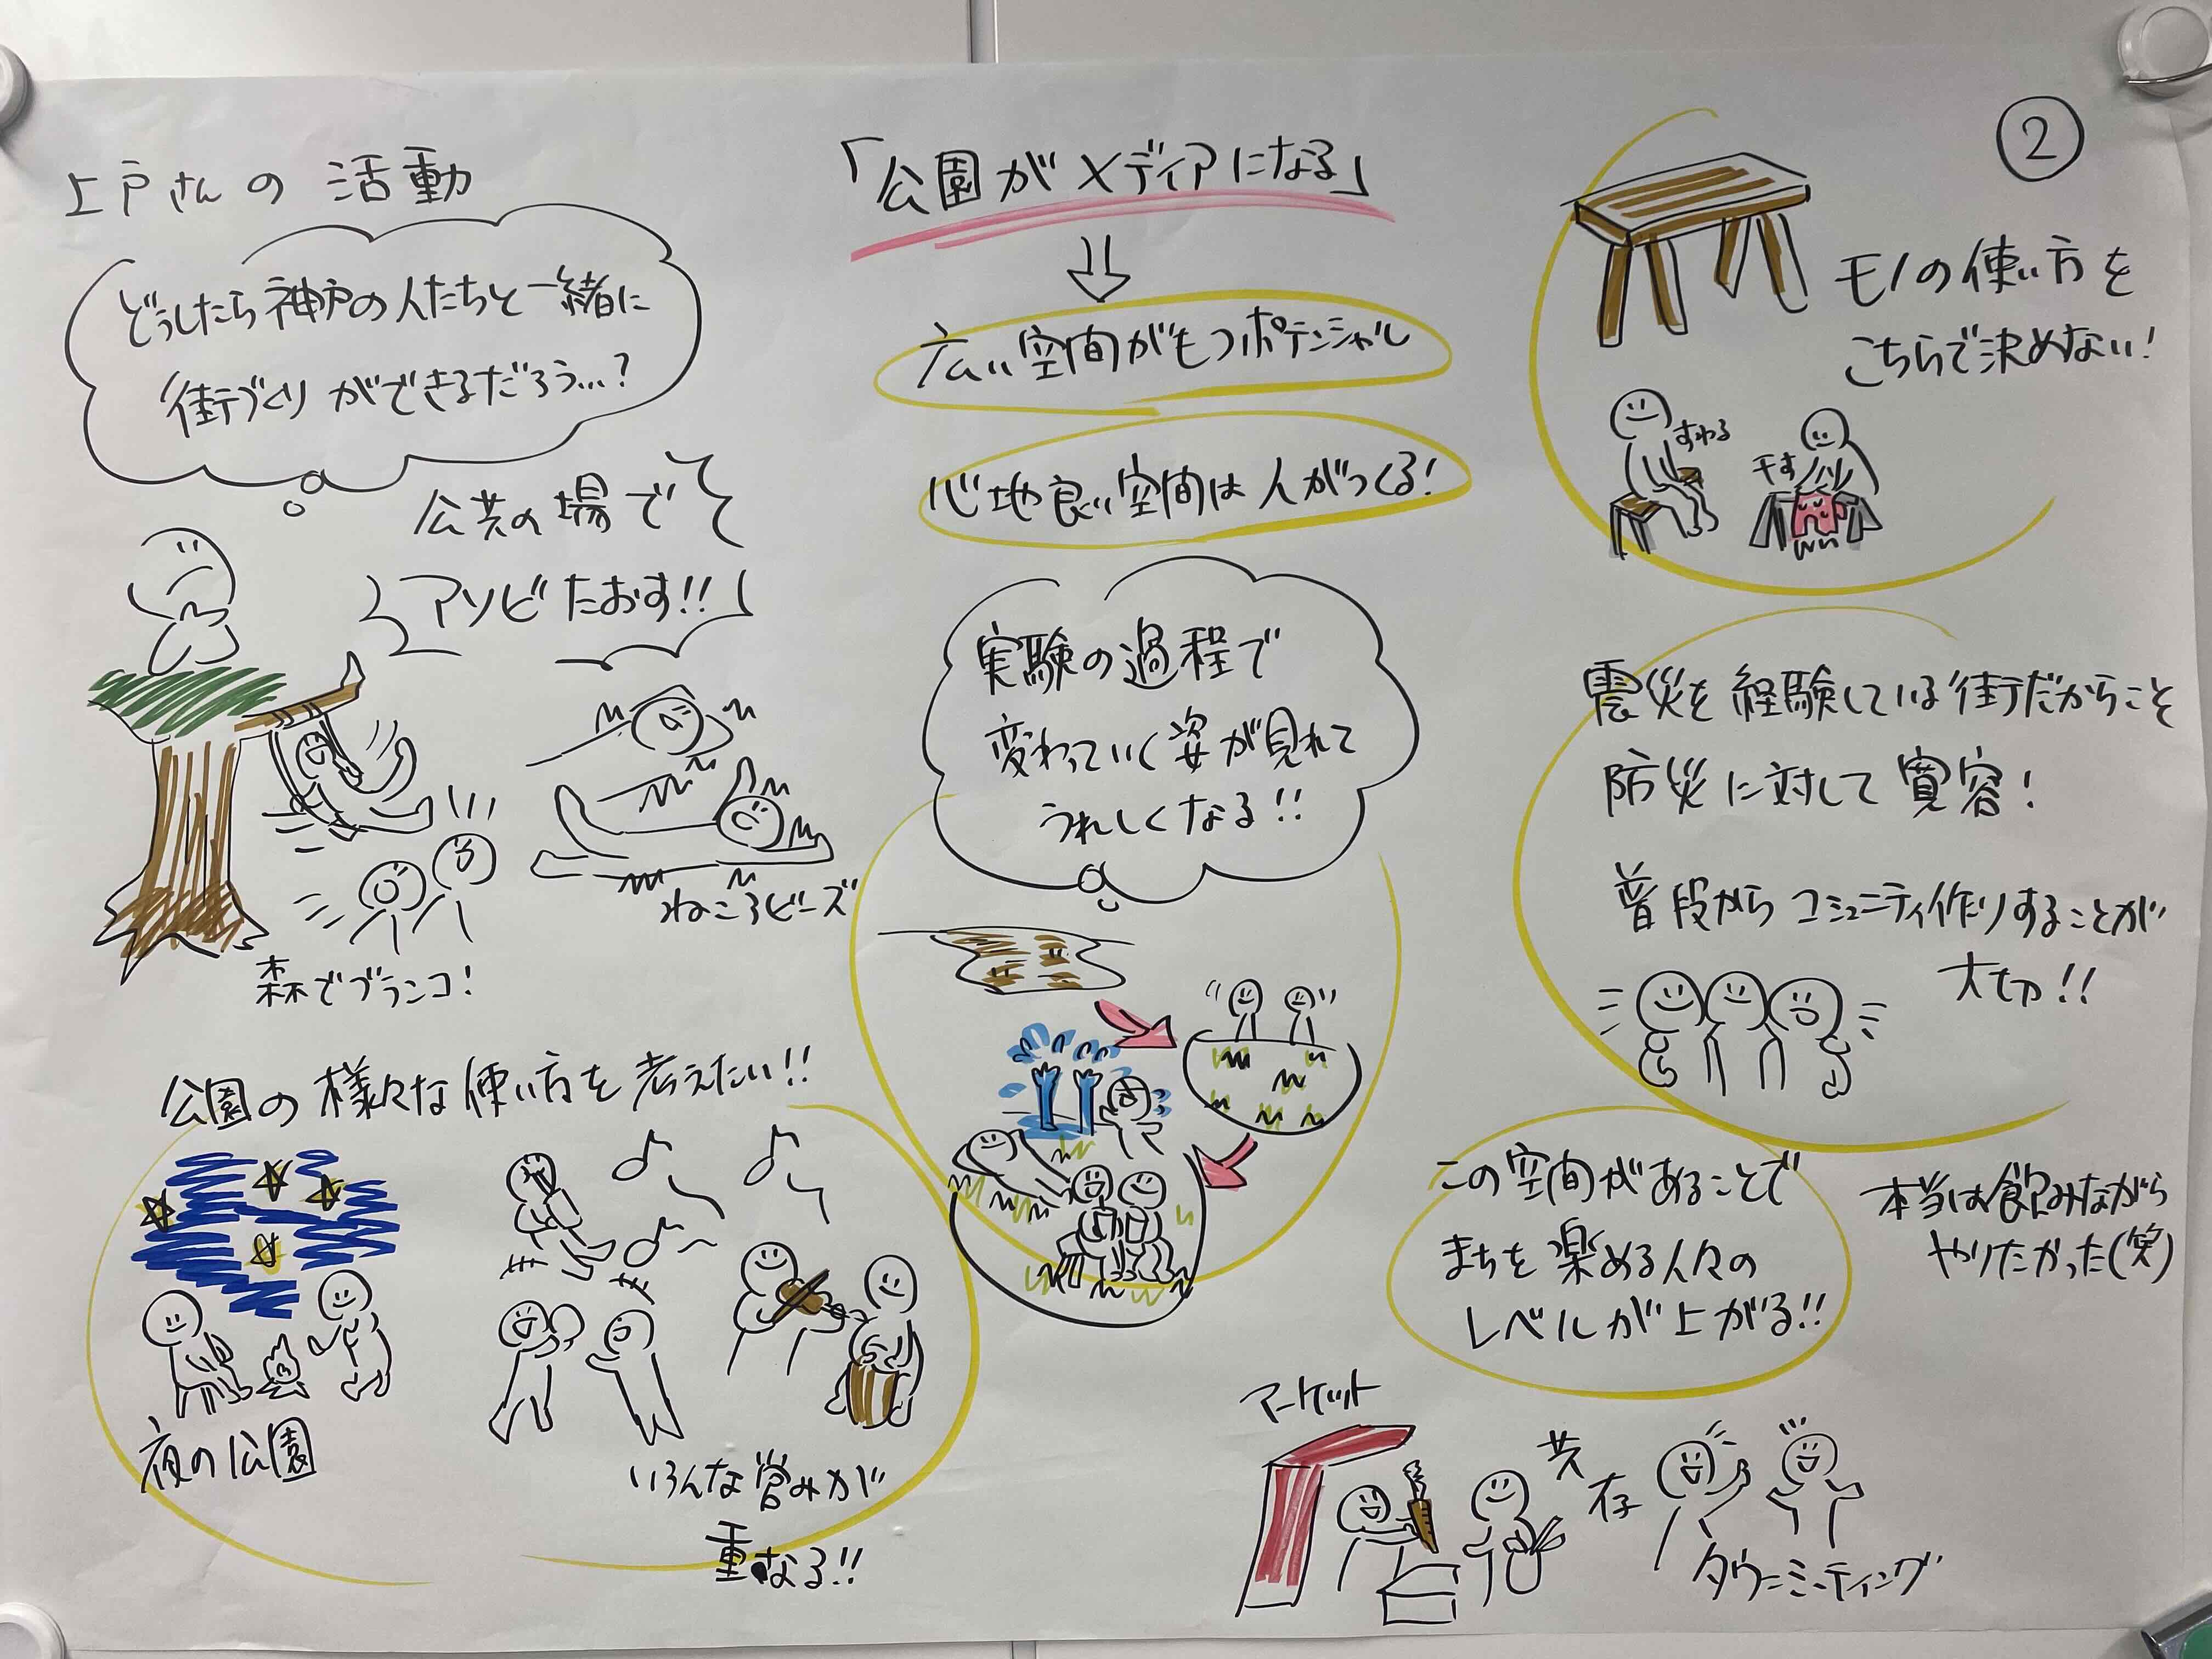 ②
上戸さんの活動
どうしたら神戸の人たちと一緒に
街づくりができるだろう…?
公共の場で
アソビたおす!!
森でブランコ!
ねころビーズ
公園の様々な使い方を考えたい!!
夜の公園
いろんな営みが
重なる!!
「公園がメディアになる」
⇓
広い空間がもつポテンシャル
心地良い空間は人がつくる!
実験の過程で
変わっていく姿が見れて
うれしくなる!!
モノの使い方を
こちらで決めない!
すわる
干す
震災を経験している街だからこそ
防災に対して寛容!
普段からコミュニティ作りすることが
大切!!
この空間があることで
まちを楽める人々の
レベルが上がる!!
本当は飲みながら
やりたかった(笑)
マーケット
共存
タウンミーティング